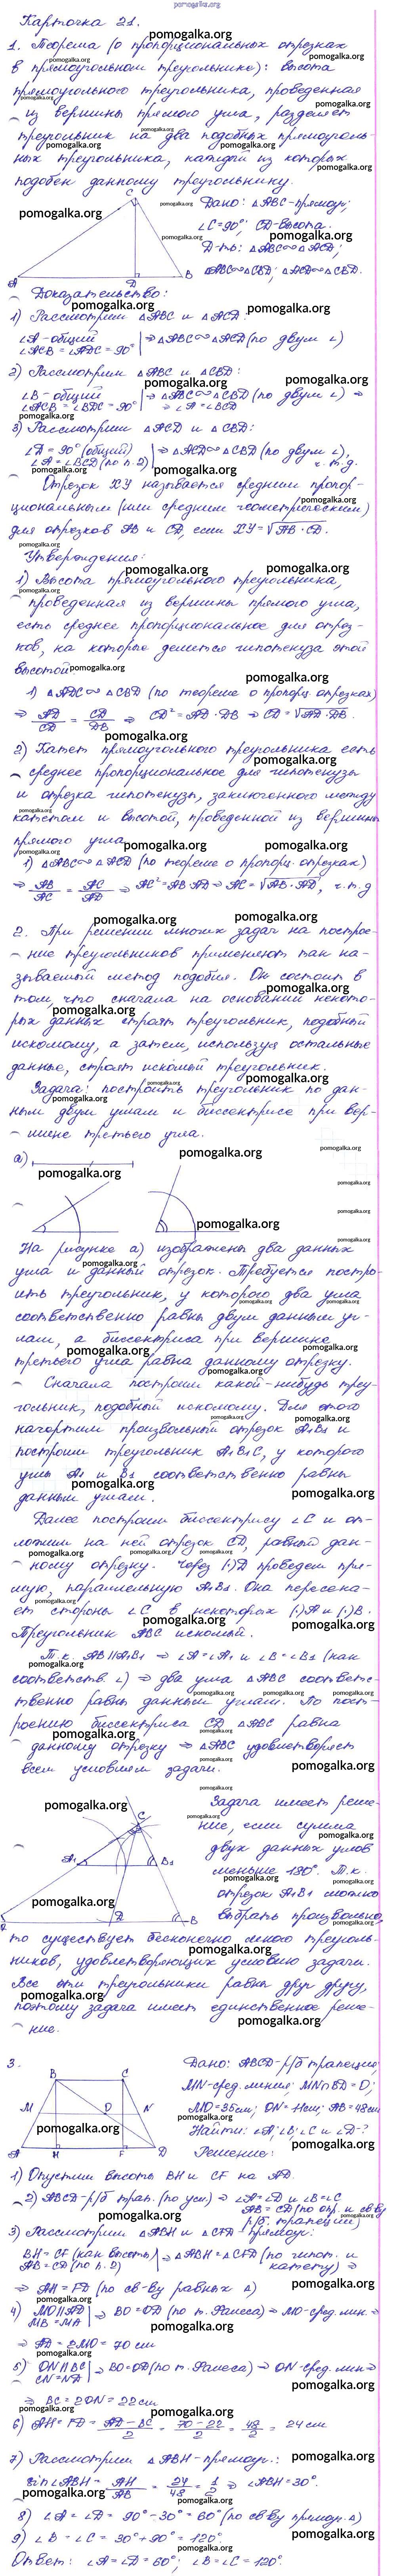 pomogalka.org
Карточка 21.
1. Теорема (о пропорциональных отрезках
в прямоугольном треугольнике): высота
прямоугольного треугольника, проведенная
из вершины прямого угла, разделяет
треугольник на два подобных прямоуголь-
ных треугольника, каждый из которых
подобен данному треугольнику.
Дано: △ABC - прямоуг;
∠C = 90°; CD - высота.
Д-ть: △ABC ∾ △ACD;
△ABC ∾ △CBD; △ACD ∾ △CBD.
C
A D B
Доказательство:
1) Рассмотрим △ABC и △ACD:
∠A - общий
∠ACB = ∠ADC = 90° | ⇒ △ABC ∾ △ACD (по двум ∠)
2) Рассмотрим △ABC и △CBD:
∠B - общий | ⇒ △ABC ∾ △CBD (по двум ∠) ⇒
∠ACB = ∠BDC = 90° | ⇒ ∠A = ∠BCD
3) Рассмотрим △ACD и △CBD:
∠D = 90° (общий) | ⇒ △ACD ∾ △CBD (по двум ∠),
∠A = ∠BCD (по п. 2) ч. т. д.
Отрезок XY называется средним пропор-
циональным (или средним геометрическим)
для отрезков AB и CD, если XY = √AB · CD.
Утверждения:
1) Высота прямоугольного треугольника,
проведенная из вершины прямого угла,
есть среднее пропорциональное для отрез-
ков, на которые делится гипотенуза этой
высотой
1) △ADC ∾ △CBD (по теореме о пропорц. отрезках)
⇒ AD/CD = CD/DB ⇒ CD² = AD · DB ⇒ CD = √AD · DB.
2) Катет прямоугольного треугольника есть
среднее пропорциональное для гипотенузы
и отрезка гипотенузы, заключенного между
катетом и высотой, проведенной из вершины
прямого угла
1) △ABC ∾ △ACD (по теореме о пропорц. отрезках)
⇒ AB/AC = AC/AD ⇒ AC² = AB · AD ⇒ AC = √AB · AD, ч. т. д
2. При решении многих задач на построе-
ние треугольников применяют так на-
зываемый метод подобия. Он состоит в
том, что сначала на основании некото-
рых данных строят треугольник, подобный
искомому, а затем, используя остальные
данные, строят искомый треугольник.
Задача: построить треугольник по дан-
ным двум углам и биссектрисе при вер-
шине третьего угла.
а)
На рисунке а) изображены два данных
угла и данный отрезок. Требуется постро-
ить треугольник, у которого два угла
соответственно равны двум данным уг-
лам, а биссектриса при вершине
третьего угла равна данному отрезку.
Сначала построим какой-нибудь треу-
гольник, подобный искомому. Для этого
начертим произвольный отрезок A1B1 и
построим треугольник A1B1C, у которого
углы A1 и B1 соответственно равны
данным углам.
Далее построим биссектрису ∠C и от-
ложим на ней отрезок CD, равный дан-
ному отрезку. Через (·)D проведем пря-
мую, параллельную A1B1. Она пересека-
ет стороны ∠C в некоторых (·)A и (·)B.
Треугольник ABC искомый.
Т.к. AB∥A1B1 ⇒ ∠A = ∠A1 и ∠B = ∠B1 (как
соответств. ∠) ⇒ два угла △ABC соответс-
твенно равны данным углам. По пост-
роению биссектриса CD △ABC равна
данному отрезку ⇒ △ABC удовлетворяет
всем условиям задачи.
Задача имеет реше-
ние, если сумма
двух данных углов
меньше 180°. Т.к.
отрезок A1B1 можно
выбрать произвольно,
C
A1 B1
D B
то существует бесконечно много треуголь-
ников, удовлетворяющих условию задачи.
Все эти треугольники равны друг другу,
поэтому задача имеет единственное реше-
ние.
3.
Дано: ABCD - р/б трапеция;
MN - сред. линия; MN∩BD = O;
MO = 35см; ON = 11см; AB = 48см
Найти: ∠A; ∠B; ∠C и ∠D - ?
Решение:
B C
M O N
A H F D
1) Опустим высоты BH и CF на AD.
2) ABCD - р/б трап. (по усл.) ⇒ ∠A = ∠D и ∠B = ∠C
AB = CD (по опр. и св-ву
р/б. трапеции)
3) Рассмотрим △ABH и △CFD - прямоуг.:
BH = CF (как высоты) | ⇒ △ABH = △CFD (по гипот. и
AB = CD (по п. 2) катету) ⇒
⇒ AH = FD (по св-ву равных △)
4) MO∥AD | ⇒ BO = OD (по т. Фалеса) ⇒ MO - сред. лин. ⇒
MB = MA
⇒ AD = 2MO = 70 см
5) ON∥BC | ⇒ BO = OD (по т. Фалеса) ⇒ ON - сред. лин. ⇒
CN = ND
⇒ BC = 2ON = 22см
6) AH = FD = AD - BC/2 = 70 - 22/2 = 48/2 = 24 см
7) Рассмотрим △ABH - прямоуг.:
sin ∠ABH = AH/AB = 24/48 = 1/2 ⇒ ∠ABH = 30°.
8) ∠A = ∠D = 90° - 30° = 60° (по св-ву прямоуг. △)
9) ∠B = ∠C = 30° + 90° = 120°.
Ответ: ∠A = ∠D = 60°; ∠B = ∠C = 120°.